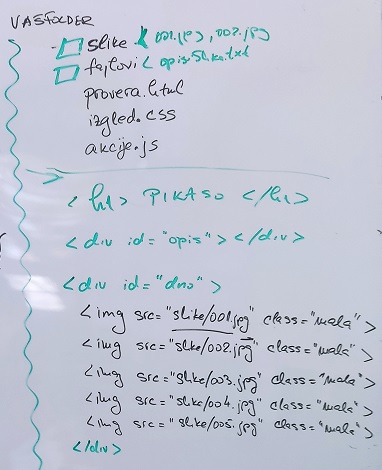 VAŠFOLDER
slike < 001.jpg, 002.jpg
fajlovi < opisSlika.txt
provera.html
izgled.css
akcije.js
<h1> PIKASO </h1>
<div id="opis"></div>
<div id="dno">
<img src="slike/001.jpg" class="mala">
<img src="slike/002.jpg" class="mala">
<img src="slike/003.jpg" class="mala">
<img src="slike/004.jpg" class="mala">
<img src="slike/005.jpg" class="mala">
</div>